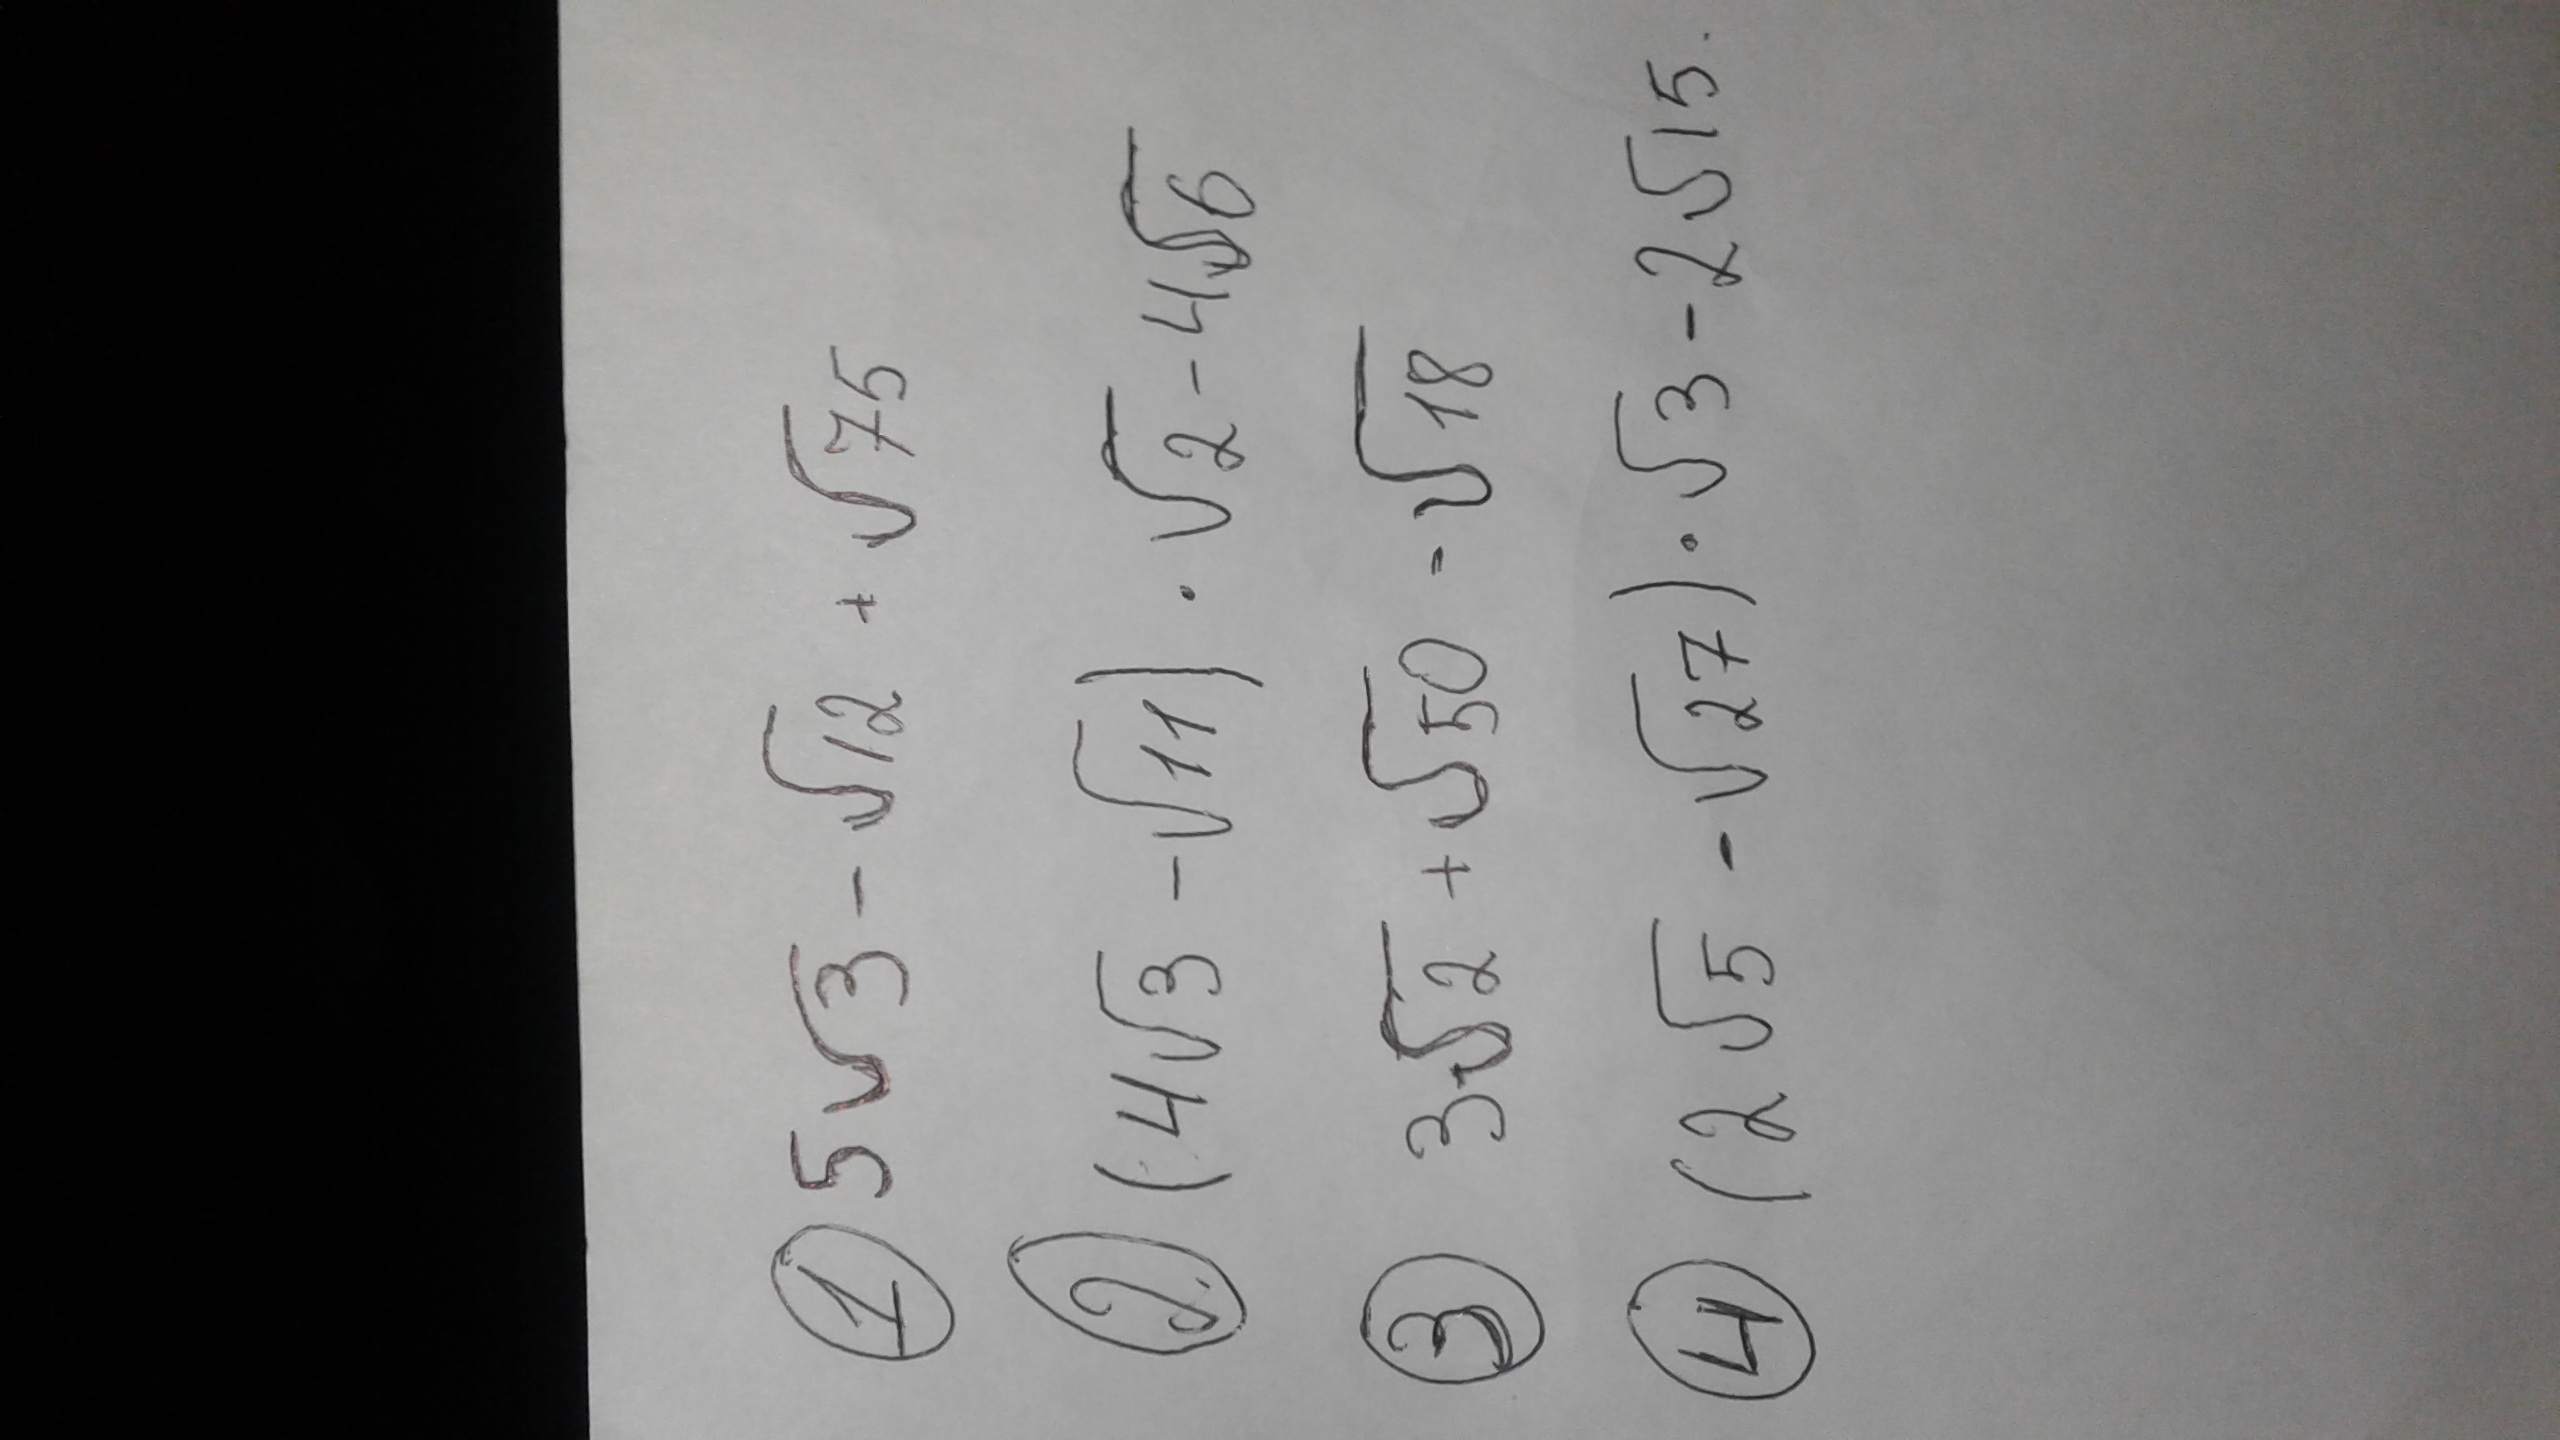 ① 5√3 - √12 + √75
② (4√3 - √11) · √2 - 4√6
③ 3√2 + √50 - √18
④ (2√5 - √27) · √3 - 2√15.